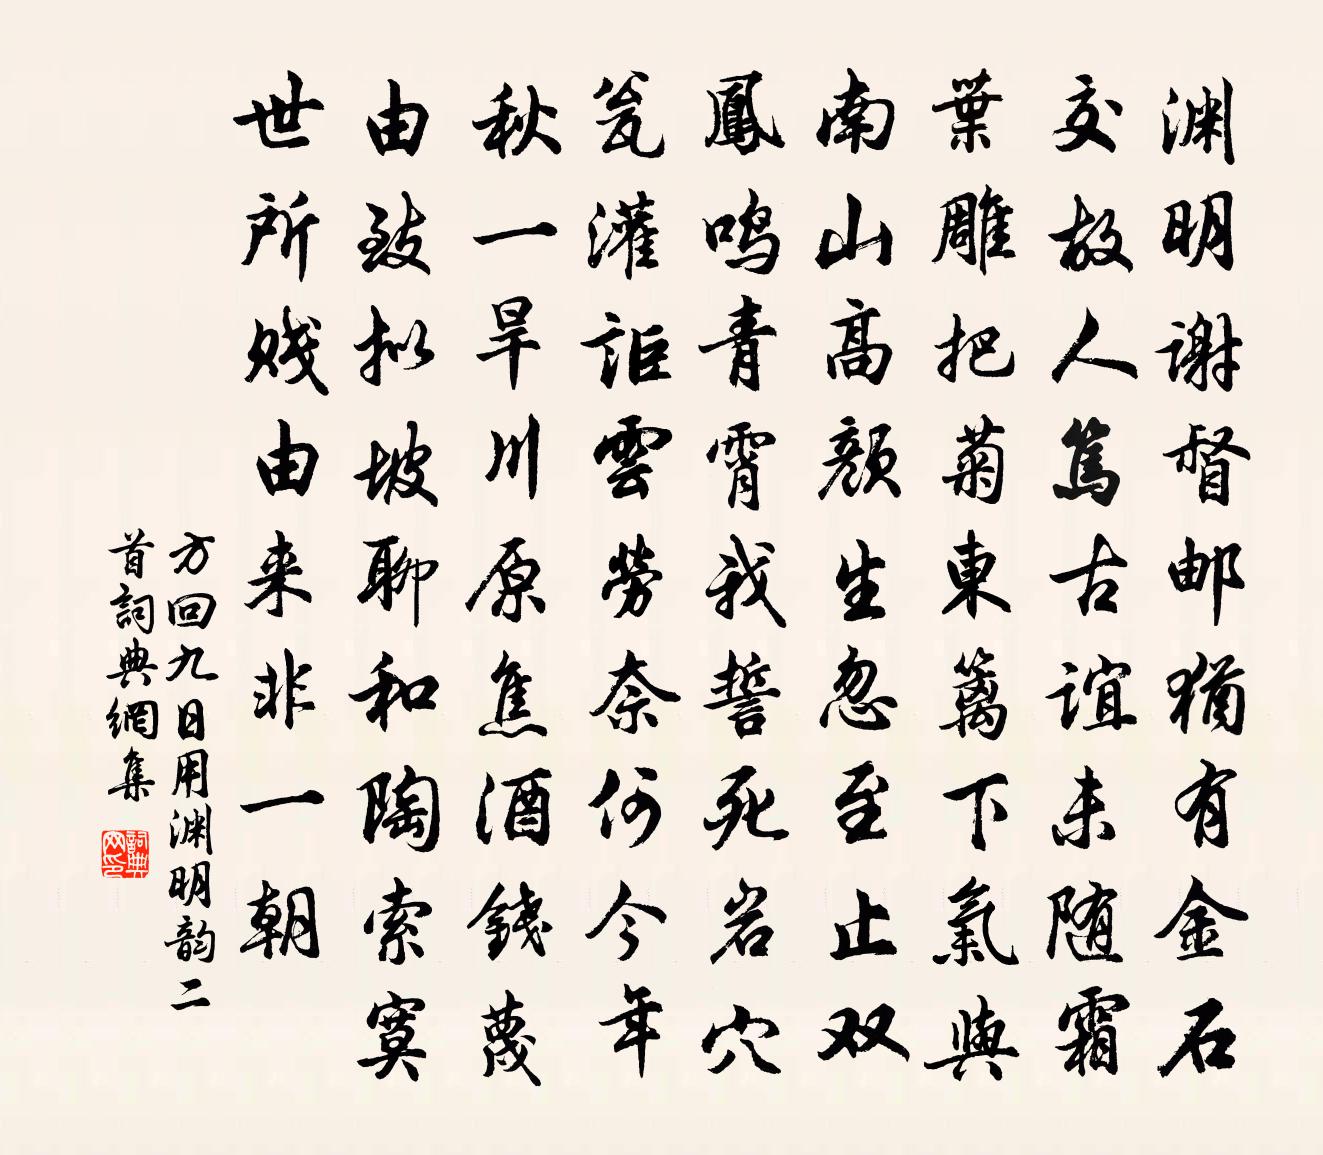 渊明谢督邮犹有金石
交故人笃古谊未随霜
葉雕把菊東籬下氣與
南山高颜生忽至止双
鳳鸣青霄我誓死岩穴
瓮灌詎雲勞奈何今年
秋一旱川原焦酒錢蔑
由致拟坡聊和陶索寞
世所贱由来非一朝
方回九日用渊明韵二
首詞典網集
詞典网印